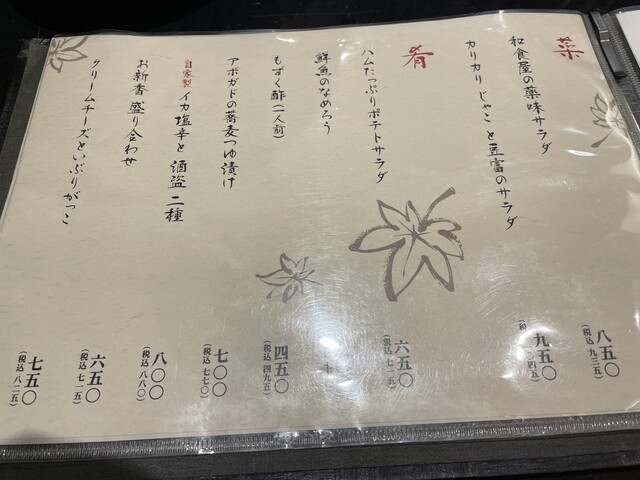 菜
和食屋の薬味サラダ
八五〇
(税込 九三五)
カリカリじゃこと豆富のサラダ
九五〇
肴
ハムたっぷりポテトサラダ
六五〇
(税込 七一五)
鮮魚のなめろう
もずく酢(一人前)
四五〇
(税込 四九五)
アボガドの蕎麦つゆ漬け
七〇〇
(税込 七七〇)
自家製 イカ塩辛と酒盗 二種
八〇〇
(税込 八八〇)
お新香 盛り合わせ
六五〇
(税込 七一五)
クリームチーズといぶりがっこ
七五〇
(税込 八二五)